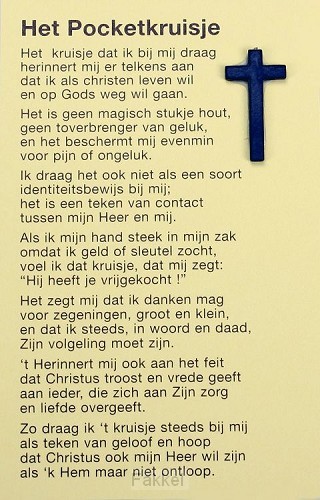 Het Pocketkruisje
Het kruisje dat ik bij mij draag
herinnert mij er telkens aan
dat ik als christen leven wil
en op Gods weg wil gaan.
Het is geen magisch stukje hout,
geen toverbrenger van geluk,
en het beschermt mij evenmin
voor pijn of ongeluk.
Ik draag het ook niet als een soort
identiteitsbewijs bij mij;
het is een teken van contact
tussen mijn Heer en mij.
Als ik mijn hand steek in mijn zak
omdat ik geld of sleutel zocht,
voel ik dat kruisje, dat mij zegt:
"Hij heeft je vrijgekocht !"
Het zegt mij dat ik danken mag
voor zegeningen, groot en klein,
en dat ik steeds, in woord en daad,
Zijn volgeling moet zijn.
't Herinnert mij ook aan het feit
dat Christus troost en vrede geeft
aan ieder, die zich aan Zijn zorg
en liefde overgeeft.
Zo draag ik 't kruisje steeds bij mij
als teken van geloof en hoop
dat Christus ook mijn Heer wil zijn
als 'k Hem maar niet ontloop.
Fakkel